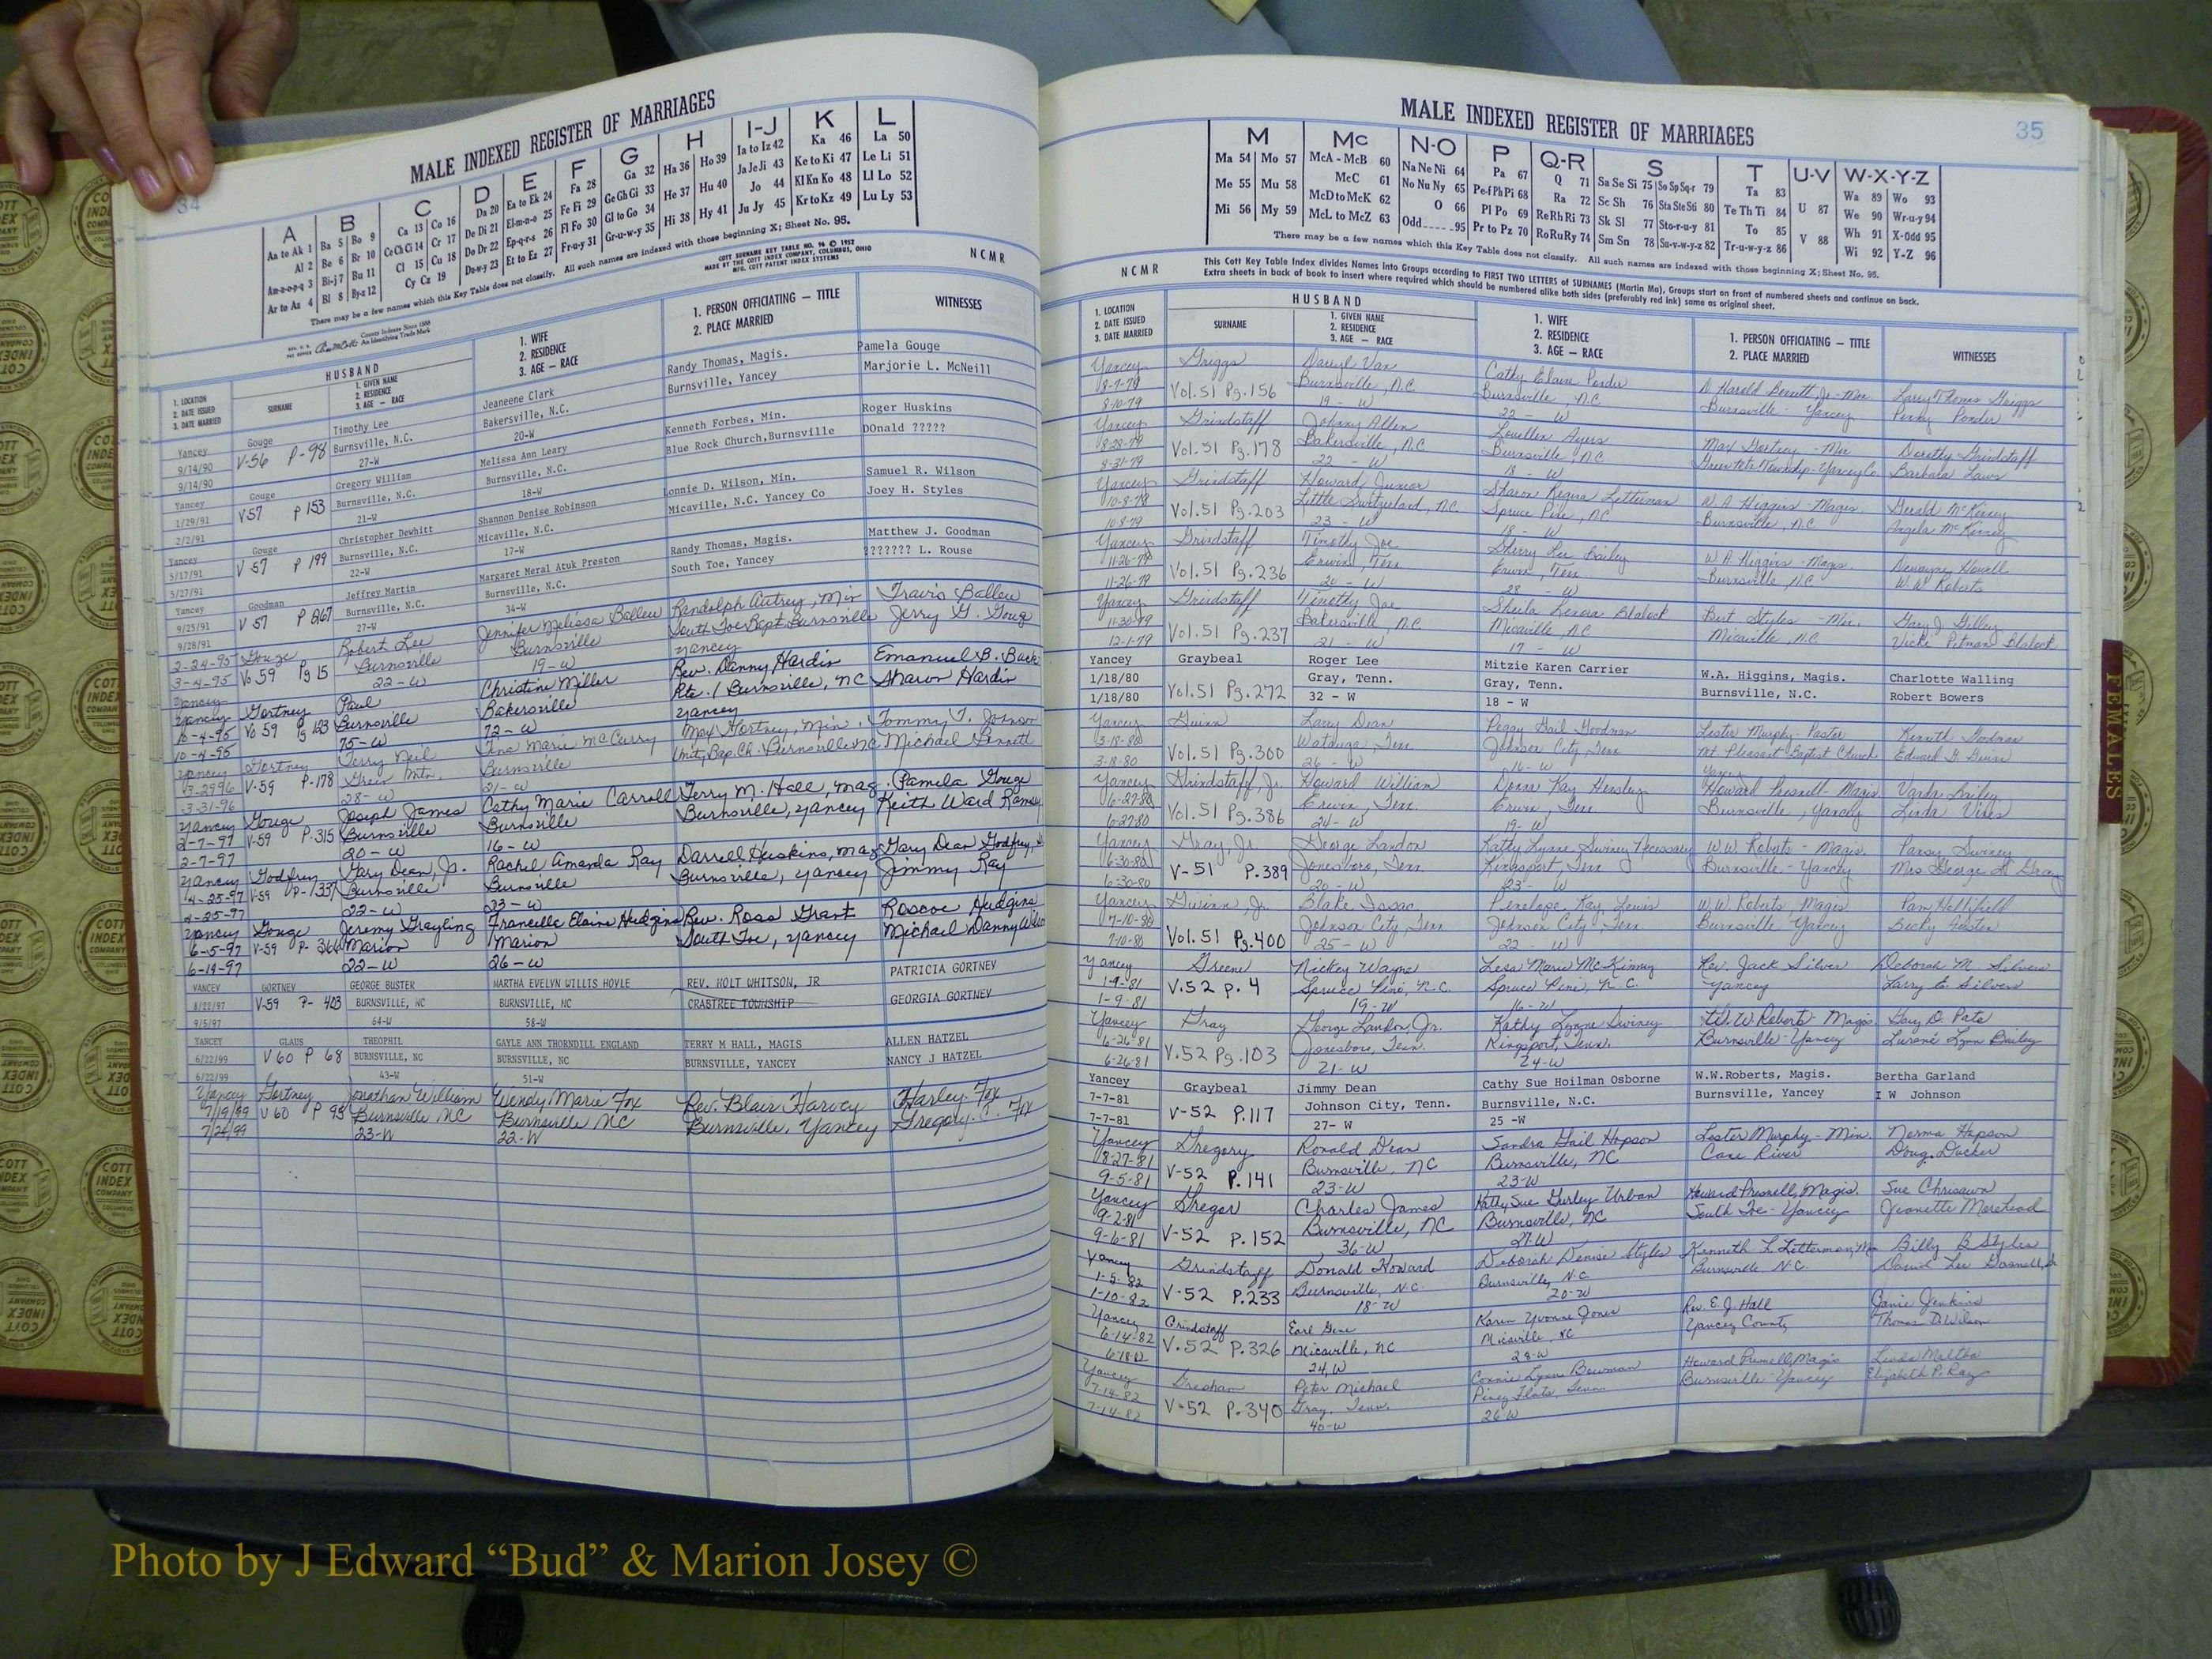 34
MALE INDEXED REGISTER OF MARRIAGES
A B C D E F G H I-J K L
Aa to Ak 1 Ba 5 Bo 9 Ca 13 Co 16 Da 20 Ea to Ek 24 Fa 28 Ga 32 Ha 36 Ho 39 Ia to Iz 42 Ka 46 La 50
Al 2 Be 6 Br 10 Ce Ch Ci 14 Cr 17 De Di 21 El-m-n-o 25 Fe Fi 29 Ge Gh Gi 33 He 37 Hu 40 Ja Je Ji 43 Ke to Ki 47 Le Li 51
Am-n-o-p-q 3 Bi-j 7 Bu 11 Cl 15 Cu 18 Do Dr 22 Ep-q-r-s 26 Fl Fo 30 Gl to Go 34 Hi 38 Hy 41 Jo 44 Kl Kn Ko 48 Ll Lo 52
Ar to Az 4 Bl 8 By-z 12 Cy Cz 19 Du-w-y 23 Et to Ez 27 Fr-u-y 31 Gr-u-w-y 35 Ju Jy 45 Kr to Kz 49 Lu Ly 53
There may be a few names which this Key Table does not classify. All such names are indexed with those beginning X; Sheet No. 95.
COTT SURNAME KEY TABLE NO. 96 © 1952
MADE BY THE COTT INDEX COMPANY, COLUMBUS, OHIO
MFG. COTT PATENT INDEX SYSTEMS
NCMR
County Indexes Since 1888
An Identifying Trade Mark
HUSBAND
1. LOCATION 2. DATE ISSUED 3. DATE MARRIED
SURNAME
1. GIVEN NAME 2. RESIDENCE 3. AGE — RACE
1. WIFE 2. RESIDENCE 3. AGE — RACE
1. PERSON OFFICIATING — TITLE 2. PLACE MARRIED
WITNESSES
Yancey Gouge Timothy Lee Jeaneene Clark Randy Thomas, Magis. Pamela Gouge
9/14/90 V-56 P-98 Burnsville, N.C. Bakersville, N.C. Burnsville, Yancey Marjorie L. McNeill
9/14/90 27-W 20-W
Yancey Gouge Gregory William Melissa Ann Leary Kenneth Forbes, Min. Roger Huskins
1/29/91 V57 P 153 Burnsville, N.C. Burnsville, N.C. Blue Rock Church,Burnsville DOnald ?????
2/2/91 21-W 18-W
Yancey Gouge Christopher Dewhitt Shannon Denise Robinson Lonnie D. Wilson, Min. Samuel R. Wilson
5/17/91 V 57 P 199 Burnsville, N.C. Micaville, N.C. Micaville, N.C. Yancey Co Joey H. Styles
5/27/91 22-W 17-W
Yancey Goodman Jeffrey Martin Margaret Meral Atuk Preston Randy Thomas, Magis. Matthew J. Goodman
9/25/91 V 57 P 267 Burnsville, N.C. Burnsville, N.C. South Toe, Yancey ??????? L. Rouse
9/28/91 27-W 34-W
2-24-95 Gouge Robert Lee Jennifer Melissa Ballew Randolph Autrey, Min Travis Ballew
3-4-95 Vo 59 Pg 15 Burnsville Burnsville South Toe Bapt. Burnsville Jerry G. Gouge
Yancey 22-W 19-W Yancey
Yancey Gortney Paul Christine Miller Rev. Danny Hardin Emanuel B. Buck
10-4-95 Vo 59 Pg 123 Burnsville Bakersville Rte. 1 Burnsville, NC Sharon Hardin
10-4-95 75-W 72-W Yancey
Yancey Gortney Terry Neil Tina Marie McCurry Max Gortney, Min. Tommy T. Johnson
3-29-96 V-59 P-178 Green Mtn. Burnsville Unity Bap. Ch. Burnsville NC Michael
3-31-96 28-W 21-W
Yancey Gouge Joseph James Cathy Marie Carroll Terry M. Hall, Mag. Pamela Gouge
2-7-97 V-59 P-315 Burnsville Burnsville Burnsville, Yancey Keith Ward Ramsey
2-7-97 20-W 16-W
Yancey Godfrey Gary Dean, Jr. Rachel Amanda Ray Darrell Huskins, Mag Gary Dean Godfrey,
4-25-97 V-59 P-337 Burnsville Burnsville Burnsville, Yancey Jimmy Ray
4-25-97 22-W 23-W
Yancey Gouge Jeremy Grayling Francelle Elaine Hudgins Rev. Ross Grant Roscoe Hudgins
6-5-97 V-59 P-366 Marion Marion South Toe, Yancey Michael Danny
6-14-97 22-W 26-W
YANCEY GORTNEY GEORGE BUSTER MARTHA EVELYN WILLIS HOYLE REV. HOLT WHITSON, JR PATRICIA GORTNEY
8/22/97 V-59 P-403 BURNSVILLE, NC BURNSVILLE, NC CRABTREE TOWNSHIP GEORGIA GORTNEY
9/5/97 64-W 58-W
YANCEY GLAUS THEOPHIL GAYLE ANN THORNDILL ENGLAND TERRY M HALL, MAGIS ALLEN HATZEL
6/22/99 V 60 P 68 BURNSVILLE, NC BURNSVILLE, NC BURNSVILLE, YANCEY NANCY J HATZEL
6/22/99 43-W 51-W
Yancey Gortney Jonathan William Wendy Marie Fox Rev. Blair Harvey Harley Fox
7/19/99 V 60 P 95 Burnsville NC Burnsville NC Burnsville, Yancey Gregory Fox
7/24/99 23-W 22-W
35
MALE INDEXED REGISTER OF MARRIAGES
M Mc N-O P Q-R S T U-V W-X-Y-Z
Ma 54 Mo 57 McA - McB 60 Na Ne Ni 64 Pa 67 Q 71 Sa Se Si 75 So Sp Sq-r 79 Ta 83 U 87 Wa 89 Wo 93
Me 55 Mu 58 McC 61 No Nu Ny 65 Pe-f Ph Pi 68 Ra 72 Sc Sh 76 Sta Ste Sti 80 Te Th Ti 84 V 88 We 90 Wr-u-y 94
Mi 56 My 59 McD to McK 62 O 66 Pl Po 69 Re Rh Ri 73 Sk Sl 77 Sto-r-u-y 81 To 85 Wh 91 X-Odd 95
McL to McZ 63 Odd 95 Pr to Pz 70 Ro Ru Ry 74 Sm Sn 78 Su-v-w-y-z 82 Tr-u-w-y-z 86 Wi 92 Y-Z 96
There may be a few names which this Key Table does not classify. All such names are indexed with those beginning X; Sheet No. 95.
NCMR
This Cott Key Table Index divides Names into Groups according to FIRST TWO LETTERS of SURNAMES (Martin Ma), Groups start on front of numbered sheets and continue on back.
Extra sheets in back of book to insert where required which should be numbered alike both sides (preferably red ink) same as original sheet.
HUSBAND
1. LOCATION 2. DATE ISSUED 3. DATE MARRIED
SURNAME
1. GIVEN NAME 2. RESIDENCE 3. AGE — RACE
1. WIFE 2. RESIDENCE 3. AGE — RACE
1. PERSON OFFICIATING — TITLE 2. PLACE MARRIED
WITNESSES
Yancey Griggs Darryl Van Cathy Elaine Ponder D. Harold Jr-Min Larry Thomas Griggs
8-7-79 Vol.51 Pg.156 Burnsville, N.C. Burnsville, N.C Burnsville - Yancey Perry Ponder
8-10-79 19 - W 22 - W
Yancey Grindstaff Johnny Allen Louellen Ayers Max Gortney - Min Dorothy Grindstaff
8-28-79 Vol.51 Pg.178 Bakersville, N.C Burnsville, N.C Township-Yancey Co Barbara Laws
8-31-79 22 - W 18 - W
Yancey Grindstaff Howard Junior Sharon Regina Letterman W A Higgins - Magis. Gerald McKinney
10-8-79 Vol.51 Pg.203 Little Switzerland, N.C Spruce Pine, NC Burnsville, N.C Angela McKinney
10-8-79 23 - W 18 - W
Yancey Grindstaff Timothy Joe Sherry Lee Bailey W A Higgins - Magis. Dewayne Howell
11-26-79 Vol.51 Pg.236 Erwin, Tenn Erwin, Tenn Burnsville, N.C W. W. Roberts
11-26-79 20 - W 28 - W
Yancey Grindstaff Timothy Joe Sheila Blalock Bert Styles - Min. Gary J Gilley
11-30-79 Vol.51 Pg.237 Bakersville, N.C Micaville, N.C Micaville, N.C. Vicki Pitman Blalock
12-1-79 21 - W 17 - W
Yancey Graybeal Roger Lee Mitzie Karen Carrier W.A. Higgins, Magis. Charlotte Walling
1/18/80 Vol.51 Pg.272 Gray, Tenn. Gray, Tenn. Burnsville, N.C. Robert Bowers
1/18/80 32 - W 18 - W
Yancey Guinn Larry Dean Peggy Gail Goodman Lester Murphy-Pastor Kenneth Goodman
3-18-80 Vol.51 Pg.300 Watauga, Tenn. Johnson City, Tenn Mt Pleasant Baptist Church Edward G Guinn
3-18-80 26 - W 16 - W Yancey
Yancey Grindstaff, Jr. Howard William Donna Kay Hensley Howard Presnell - Magis. Varda Bailey
6-27-80 Vol.51 Pg.386 Erwin, Tenn. Erwin, Tenn Burnsville, Yancey Linda Vines
6-27-80 24 - W 19 - W
Yancey Gray, Jr. George Landon Kathy Lynne Swiney Necessary W.W. Roberts - Magis. Swiney
6-30-80 V-51 P.389 Jonesboro, Tenn. Kingsport, Tenn Burnsville - Yancey Mrs George L Gray
6-30-80 20 - W 23 - W
Yancey Guinn, Jr. Blake Isaac Penelope Kay Lewis W.W. Roberts, Magis Pam Hollifield
7-10-80 Vol.51 Pg.400 Johnson City, Tenn Johnson City, Tenn. Burnsville Yancey Becky
7-10-80 25 - W 22 - W
Yancey Greene Nickey Wayne Lesa Marie McKinney Rev. Jack Silver Deborah M. Silvers
1-9-81 V.52 P. 4 Spruce Pine, N.C. Spruce Pine, N.C. Yancey Larry E. Silvers
1-9-81 19-W 16-W
Yancey Gray George Landon, Jr. Kathy Lynne Swiney W.W. Roberts Magis. Gary D. Pate
6-26-81 V.52 Pg.103 Jonesboro, Tenn. Kingsport, Tenn. Burnsville-Yancey Lurene Lynn Bailey
6-26-81 21-W 24-W
Yancey Graybeal Jimmy Dean Cathy Sue Hoilman Osborne W.W.Roberts, Magis. Bertha Garland
7-7-81 V-52 P.117 Johnson City, Tenn. Burnsville, N.C. Burnsville, Yancey I W Johnson
7-7-81 27- W 25 -W
Yancey Gregory Ronald Dean Sandra Gail Hopson Lester Murphy-Min. Norma Hopson
8-27-81 V-52 P.141 Burnsville, NC Burnsville, NC Cane River Doug Ducker
9-5-81 23-W 23-W
Yancey Gregor Charles James Kathy Sue Gurley Urban Howard Presnell, Magis. Sue Chrisawn
9-2-81 V-52 P.152 Burnsville, NC Burnsville, NC South Toe-Yancey Jeanette Morehead
9-6-81 36-W 27-W
Yancey Grindstaff Donald Howard Deborah Denise Styles Kenneth L. Letterman, Min Billy B Styles
1-5-82 V-52 P.233 Burnsville, N.C. Burnsville, N.C. Burnsville N.C. Lee
1-10-82 18-W 20-W
Yancey Grindstaff Earl Gene Karen Yvonne Jones Rev. E.J. Hall Janie Jenkins
6-14-82 V.52 P.326 Micaville, NC Micaville, NC Yancey County Thomas D. Wilson
6-18-82 24, W 28-W
Yancey Gresham Peter Michael Connie Lynn Bowman Howard Presnell, Magis Linda Maltba
7-14-82 V-52 P.340 Gray, Tenn. Piney Flats, Tenn Burnsville-Yancey Elizabeth P. Ray
7-14-82 40-W 26-W
FEMALES
COTT INDEX COMPANY
Photo by J Edward “Bud” & Marion Josey ©